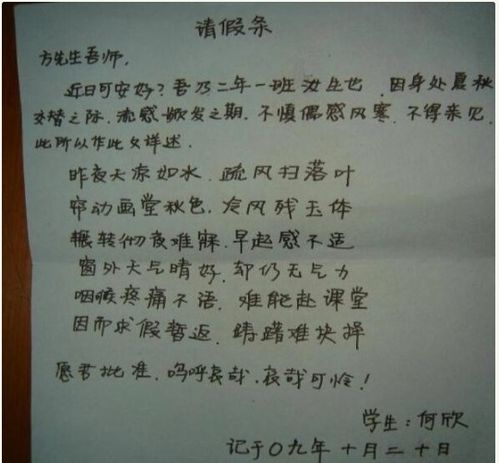 请假条
方先生吾师,
近日可安好?吾乃二年一班汝生也,因身处夏秋
交替之际,流感始发之期,不慎偶感风寒,不得亲见,
此所以作此文详述.
昨夜天凉如水,疏风扫落叶
帘动画堂秋色,冷风残玉体
辗转彻夜难寐,早起感不适
窗外天气晴好,却仍无气力
咽喉疼痛不语,难能赴课堂
因而求假暂返,踌躇难抉择
愿君批准,呜呼哀哉,哀哉可怜!
学生:何欣
记于〇九年十月二十日